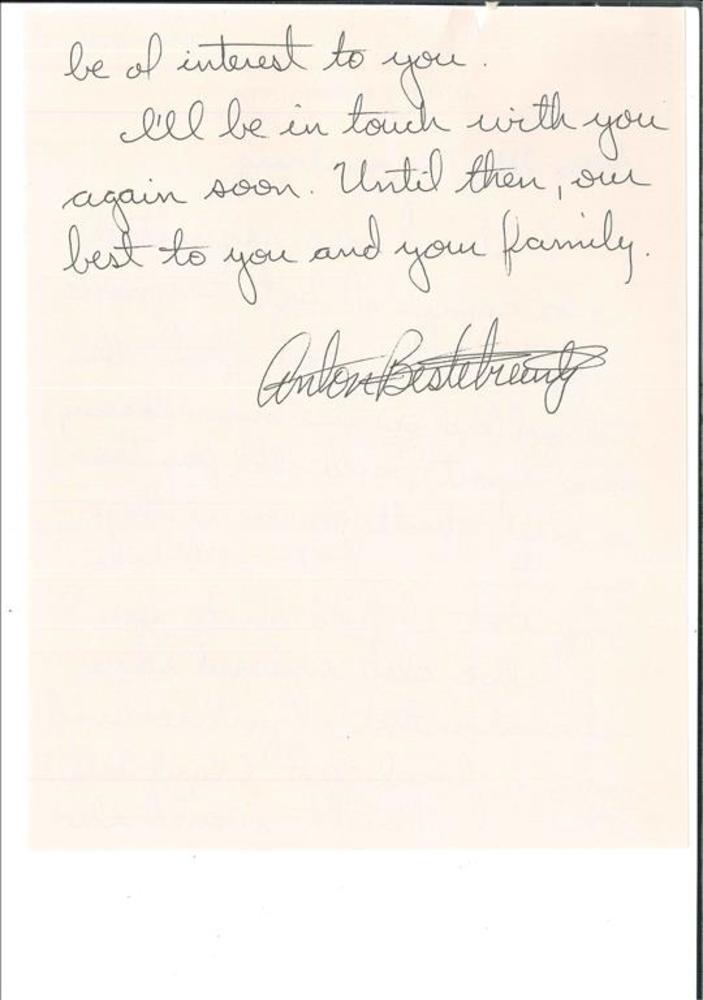 be of interest to you.
I'll be in touch with you
again soon. Until then, our
best to you and your family.
Anton Bestebreurtje